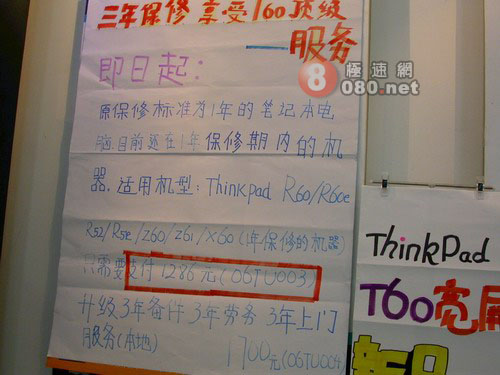 三年保修 享受160顶级
服务
8 極速網
080.net
即日起:
原保修标准为1年的笔记本电
脑.目前还在1年保修期内的机
器.适用机型: Thinkpad R60/R60e
R52/R51e/Z60/Z61/X60(1年保修的机器
只需要支付1286元(06TU003)
升级3年备件 3年劳务 3年上门
服务(本地) 1700元(06TU004
ThinkPad
T60亮屏